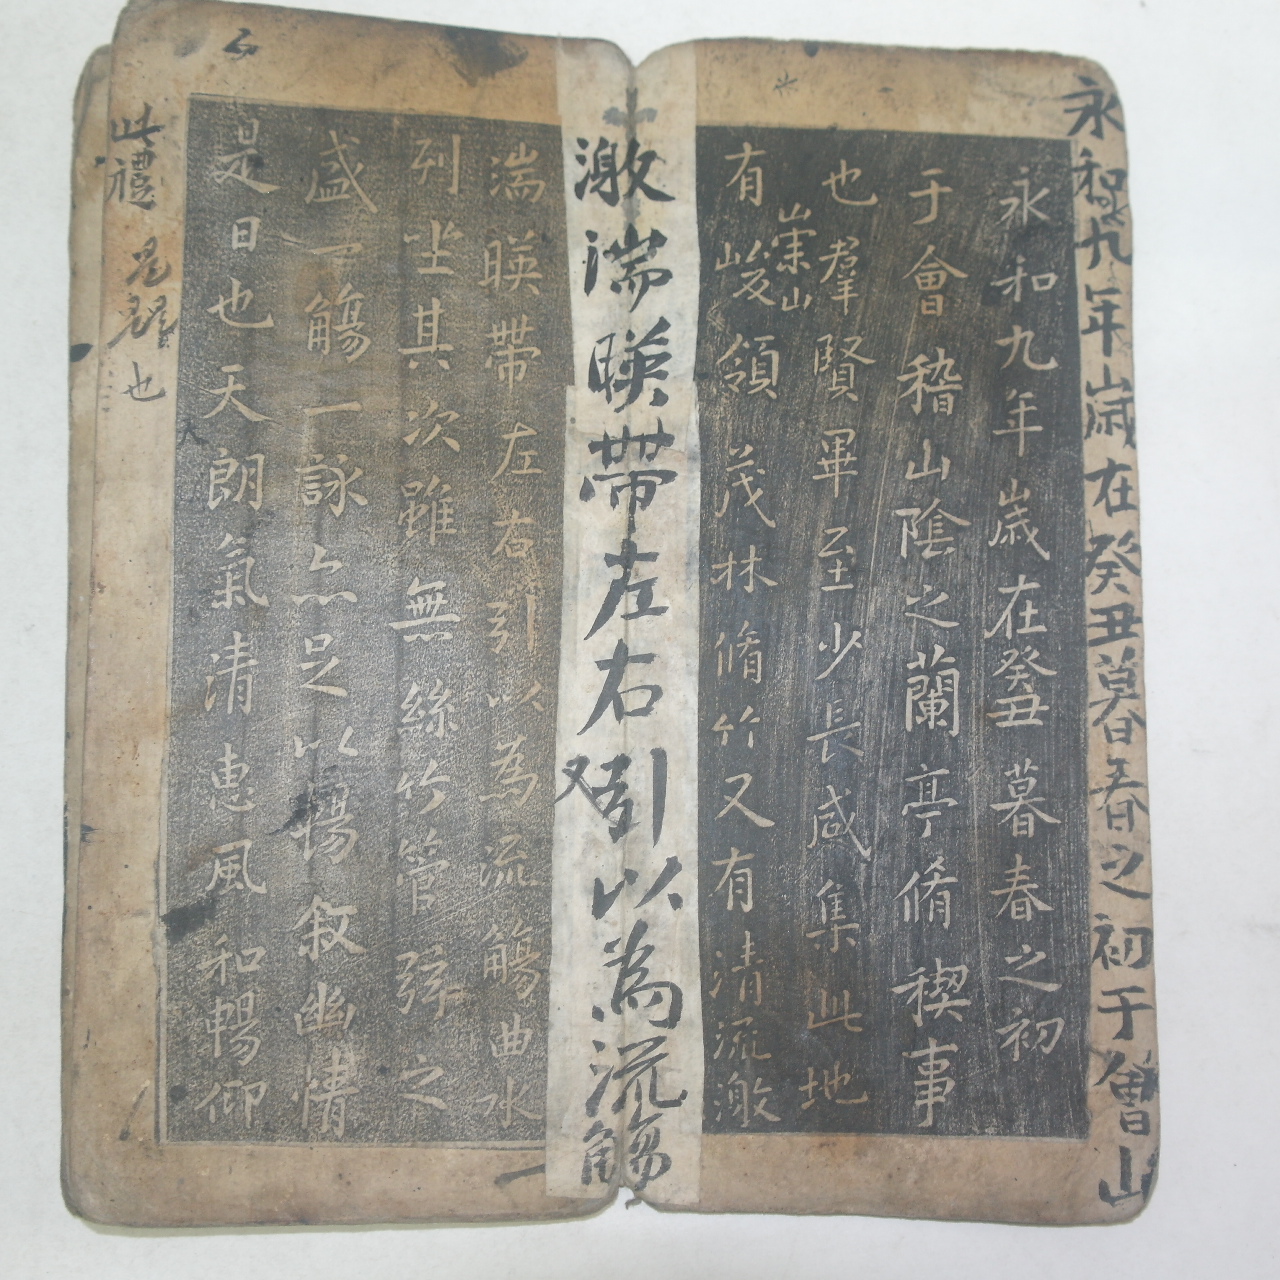 永和九年歲在癸丑暮春之初于會山
永和九年歲在癸丑暮春之初
于會稽山陰之蘭亭脩禊事
也羣賢畢至少長咸集此地
崇山
有峻領茂林脩竹又有清流激
激湍暎帶左右引以為流觴
又
湍暎帶左右引以為流觴曲水
列坐其次雖無絲竹管弦之
盛一觴一詠亦足以暢敘幽情
是日也天朗氣清惠風和暢仰
此禮
也